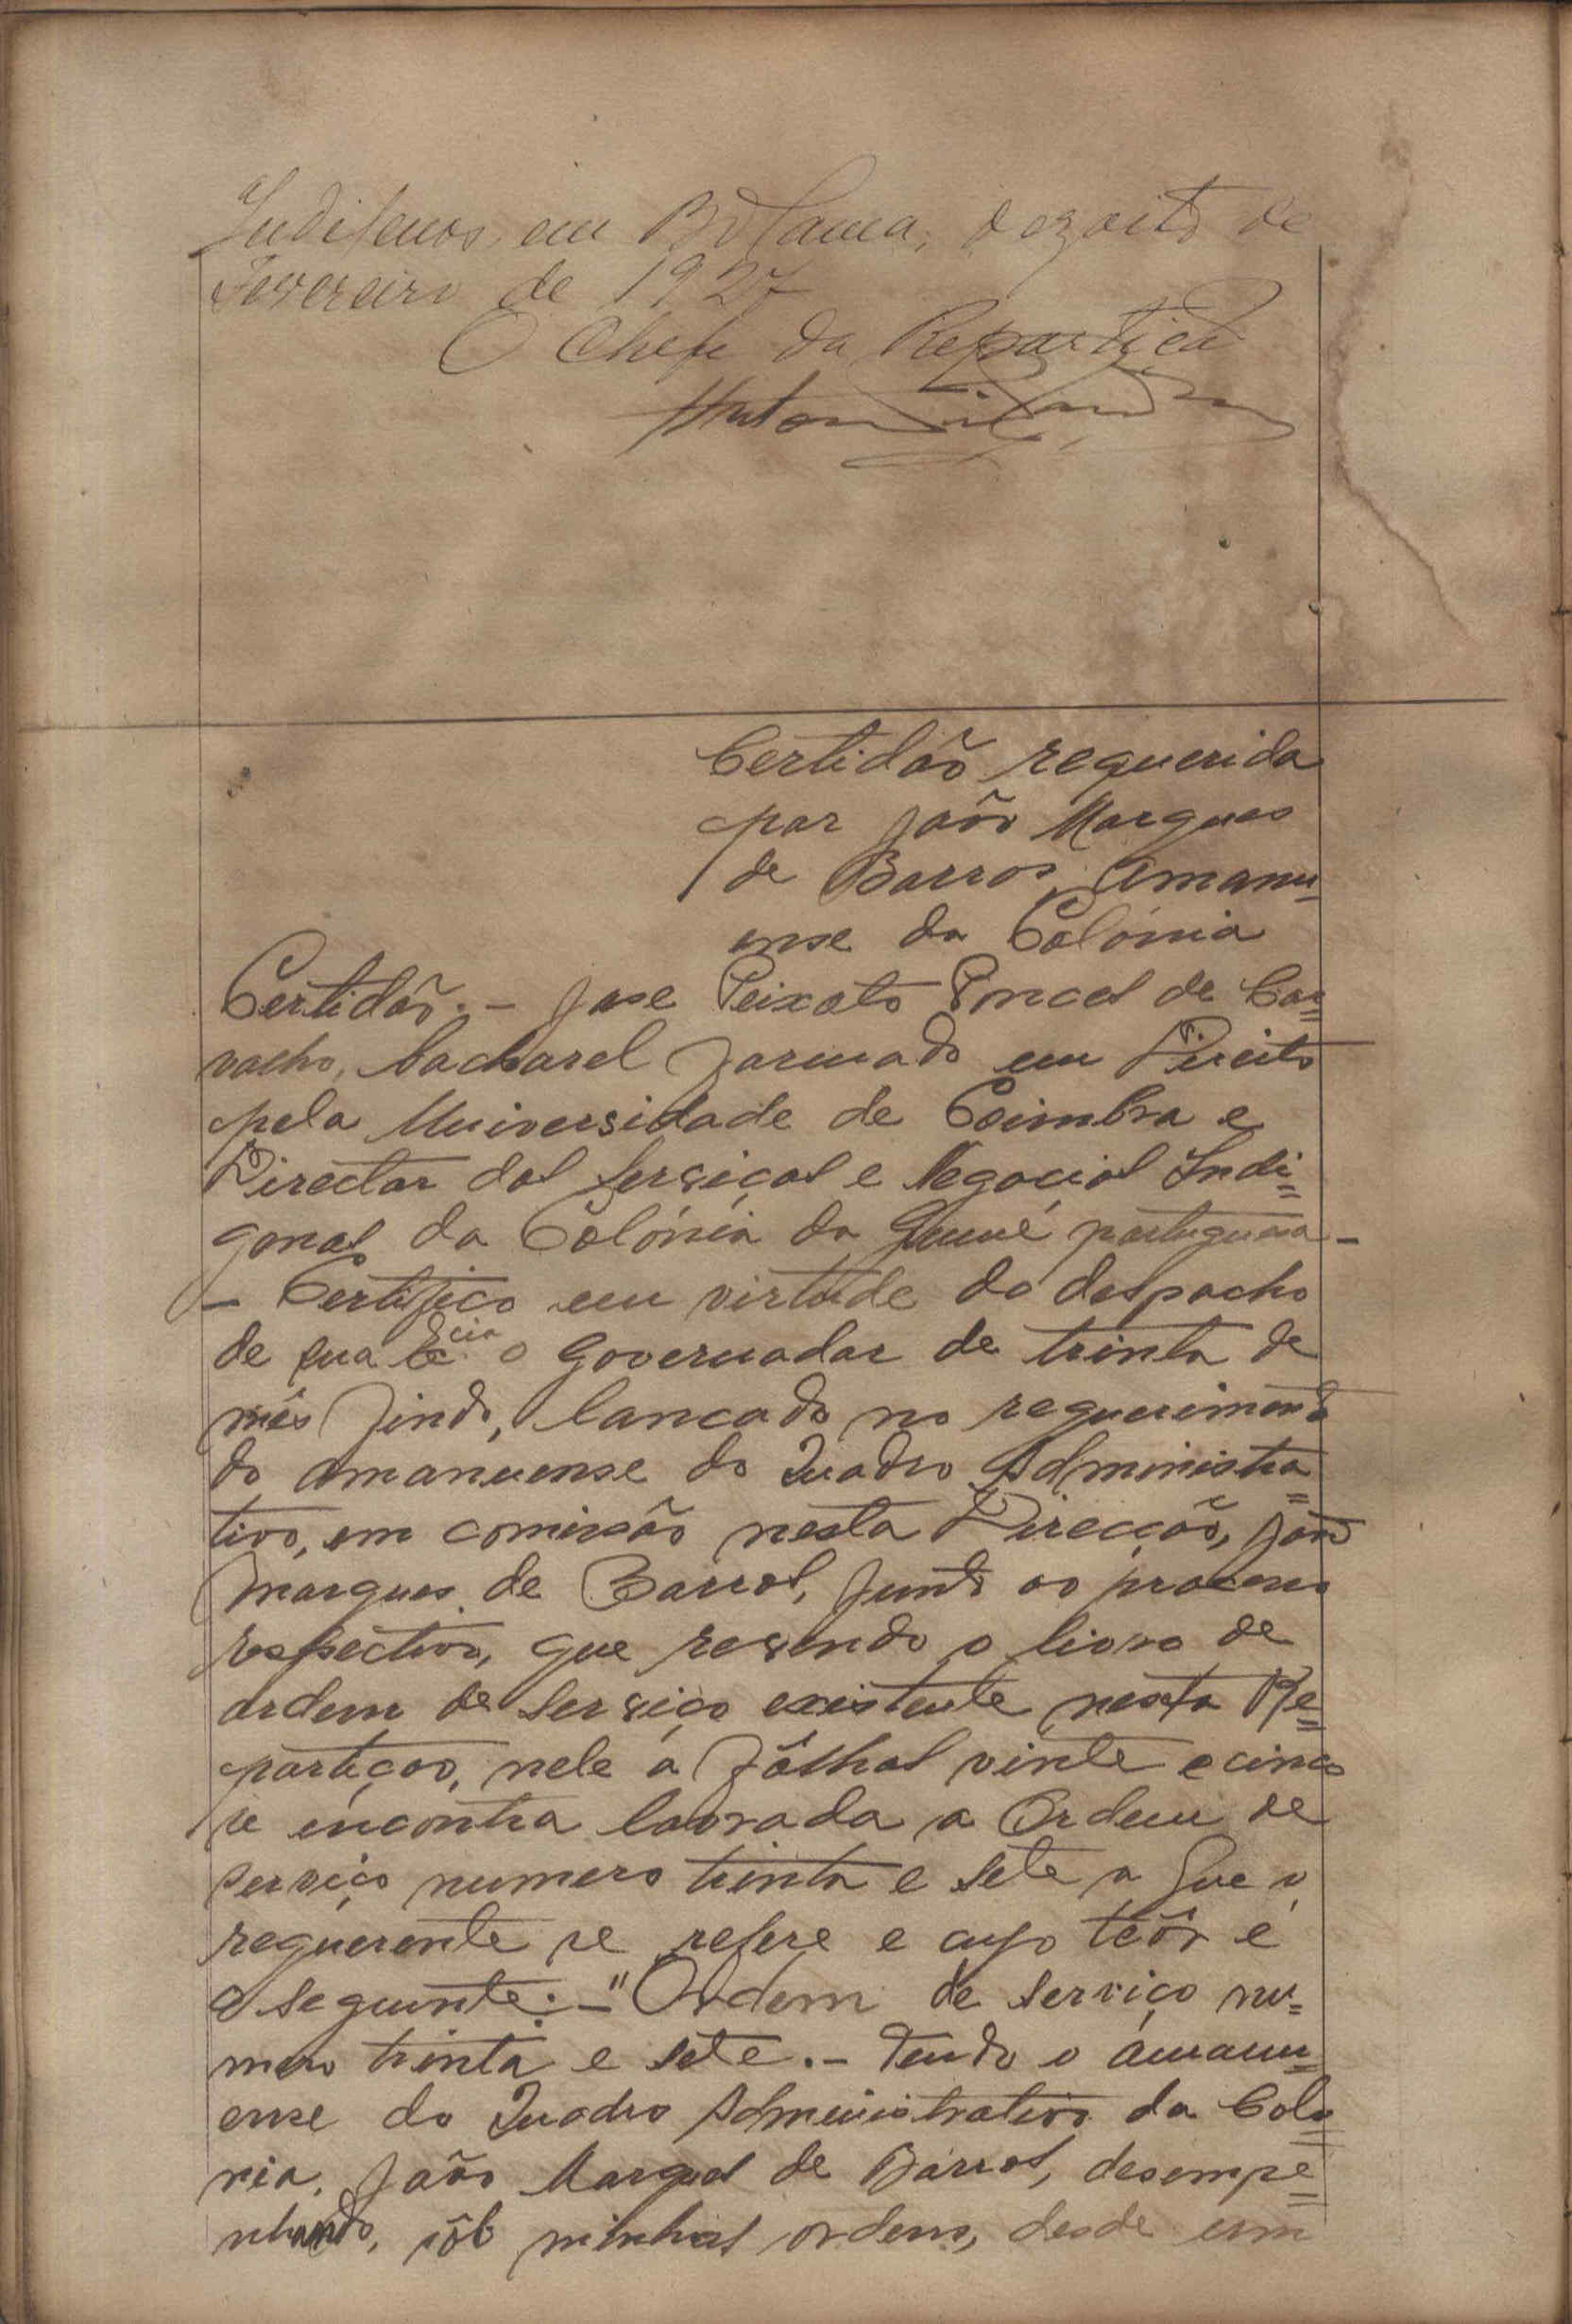 Indigenas, em Bolama, dezoito de
Fevereiro de 1927
O Chefe da Repartição
Certidão requerida
por João Marques
de Barros, Amanu-
ense da Colónia
Certidão. – José Peixoto Poncel de Car=
valho, bacharel formado em Direito
pela Universidade de Coimbra e
Director dos Serviços e Negocios Indi=
genas da Colónia da Guiné portuguesa –
– Certifico em virtude do despacho
de sua Ex.cia o Governador de trinta de
mês findo, lançado no requerimento
do amanuense do Quadro Administra=
tivo, em comissão nesta Direcção, João
Marques de Barros, junto ao processo
respectivo, que revendo o livro de
ordem de serviço existente nesta Re=
partiçao, nele a fôlhas vinte e cinco
se encontra lavrada a Ordem de
serviço numero trinta e sete a que o
requerente se refere e cujo teôr é
o seguinte: – "Ordem de serviço nu=
mero trinta e sete. – Tendo o amanu=
ense do Quadro Administrativo da Colo=
nia, João Marques de Barros, desempe=
nhando, sôb minhas ordens, desde um